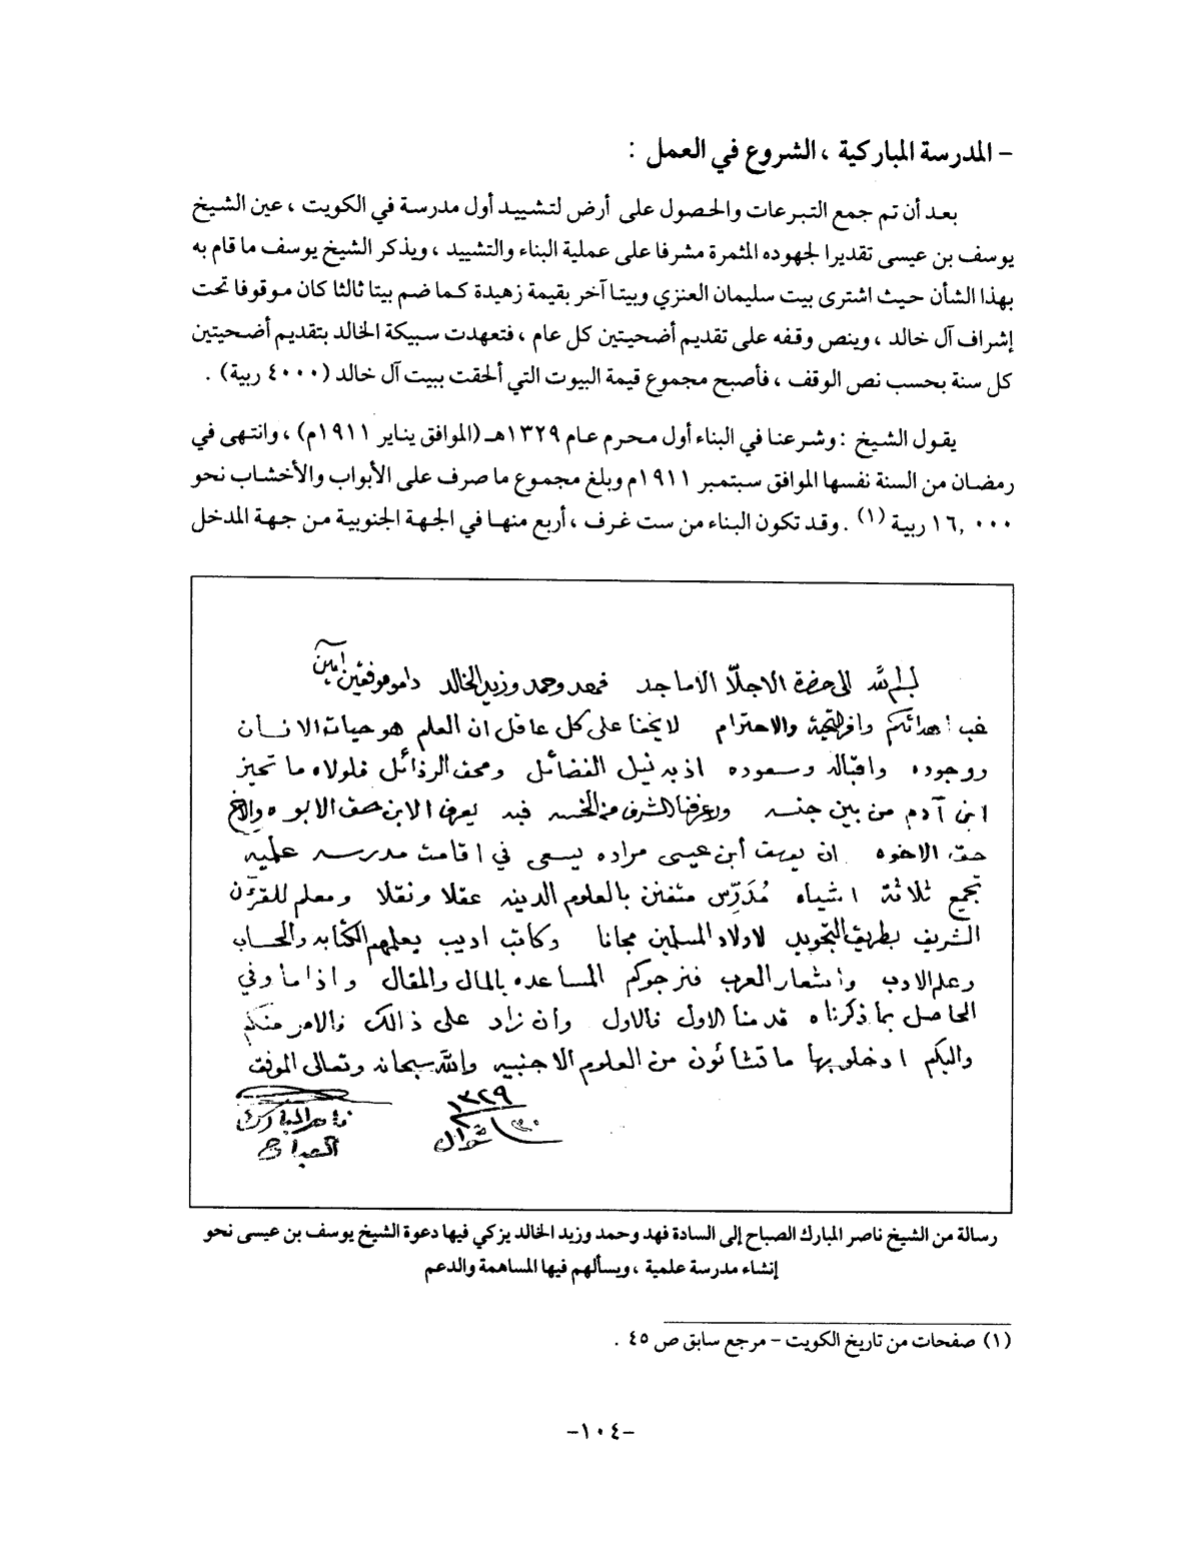 – المدرسة المباركية ، الشروع في العمل :
بعد أن تم جمع التبرعات والحصول على أرض لتشييد أول مدرسة في الكويت ، عين الشيخ
يوسف بن عيسى تقديرا لجهوده المثمرة مشرفا على عملية البناء والتشييد ، ويذكر الشيخ يوسف ما قام به
بهذا الشأن حيث اشترى بيت سليمان العنزي وبيتا آخر بقيمة زهيدة كما ضم بيتا ثالثا كان موقوفا تحت
إشراف آل خالد ، وينص وقفه على تقديم أضحيتين كل عام ، فتعهدت سبيكة الخالد بتقديم أضحيتين
كل سنة بحسب نص الوقف ، فأصبح مجموع قيمة البيوت التي ألحقت ببيت آل خالد (٤٠٠٠ ربية) .
يقول الشيخ : وشرعنا في البناء أول محرم عام ١٣٢٩هـ (الموافق يناير ١٩١١م) ، وانتهى في
رمضان من السنة نفسها الموافق سبتمبر ١٩١١م وبلغ مجموع ما صرف على الأبواب والأخشاب نحو
١٦,٠٠٠ ربية (١) . وقد تكون البناء من ست غرف ، أربع منها في الجهة الجنوبية من جهة المدخل
الى حضرة الاجلّا الاماجد فهد وحمد وزيد الخالد دامو موفقين آمين
غب اهدائكم وافر التحية والاحترام لا يخفا على كل عاقل ان العلم هو حيات الانسان
ووجوده واقباله وسعوده اذ به نيل الفضائل ومحق الرذائل فلولاه ما تميز
ابن آدم من بين جنسه الشرف من الخسه فبه يعرف الابن حق الابوه والاخ
حق الاخوه ان يوسف أبن عيسى مراده يسعى في اقامت مدرسه علميه
تجمع ثلاثة اشياء مُدَرّس متفنن بالعلوم الدينه عقلا ونقلا ومعلم للقرءن
الشريف بطريق التجويد لاولاد المسلمين مجانا وكاتب اديب يعلمهم الكتابه والحساب
وعلم الادب وأشعار العرب فنرجوكم المساعده بالمال والمقال واذا ما وفي
الحاصل بما ذكرناه قدمنا الاول فالاول وأن زاد على ذالك فالامر منكم
واليكم ادخلو بها ما تشائون من العلوم الاجنبيه والله سبحانه وتعالى الموفق
١٣٢٩
شوال
ناصر المبارك
الصباح
رسالة من الشيخ ناصر المبارك الصباح إلى السادة فهد وحمد وزيد الخالد يزكي فيها دعوة الشيخ يوسف بن عيسى نحو
إنشاء مدرسة علمية ، ويسألهم فيها المساهمة والدعم
(١) صفحات من تاريخ الكويت – مرجع سابق ص ٤٥ .
–١٠٤–